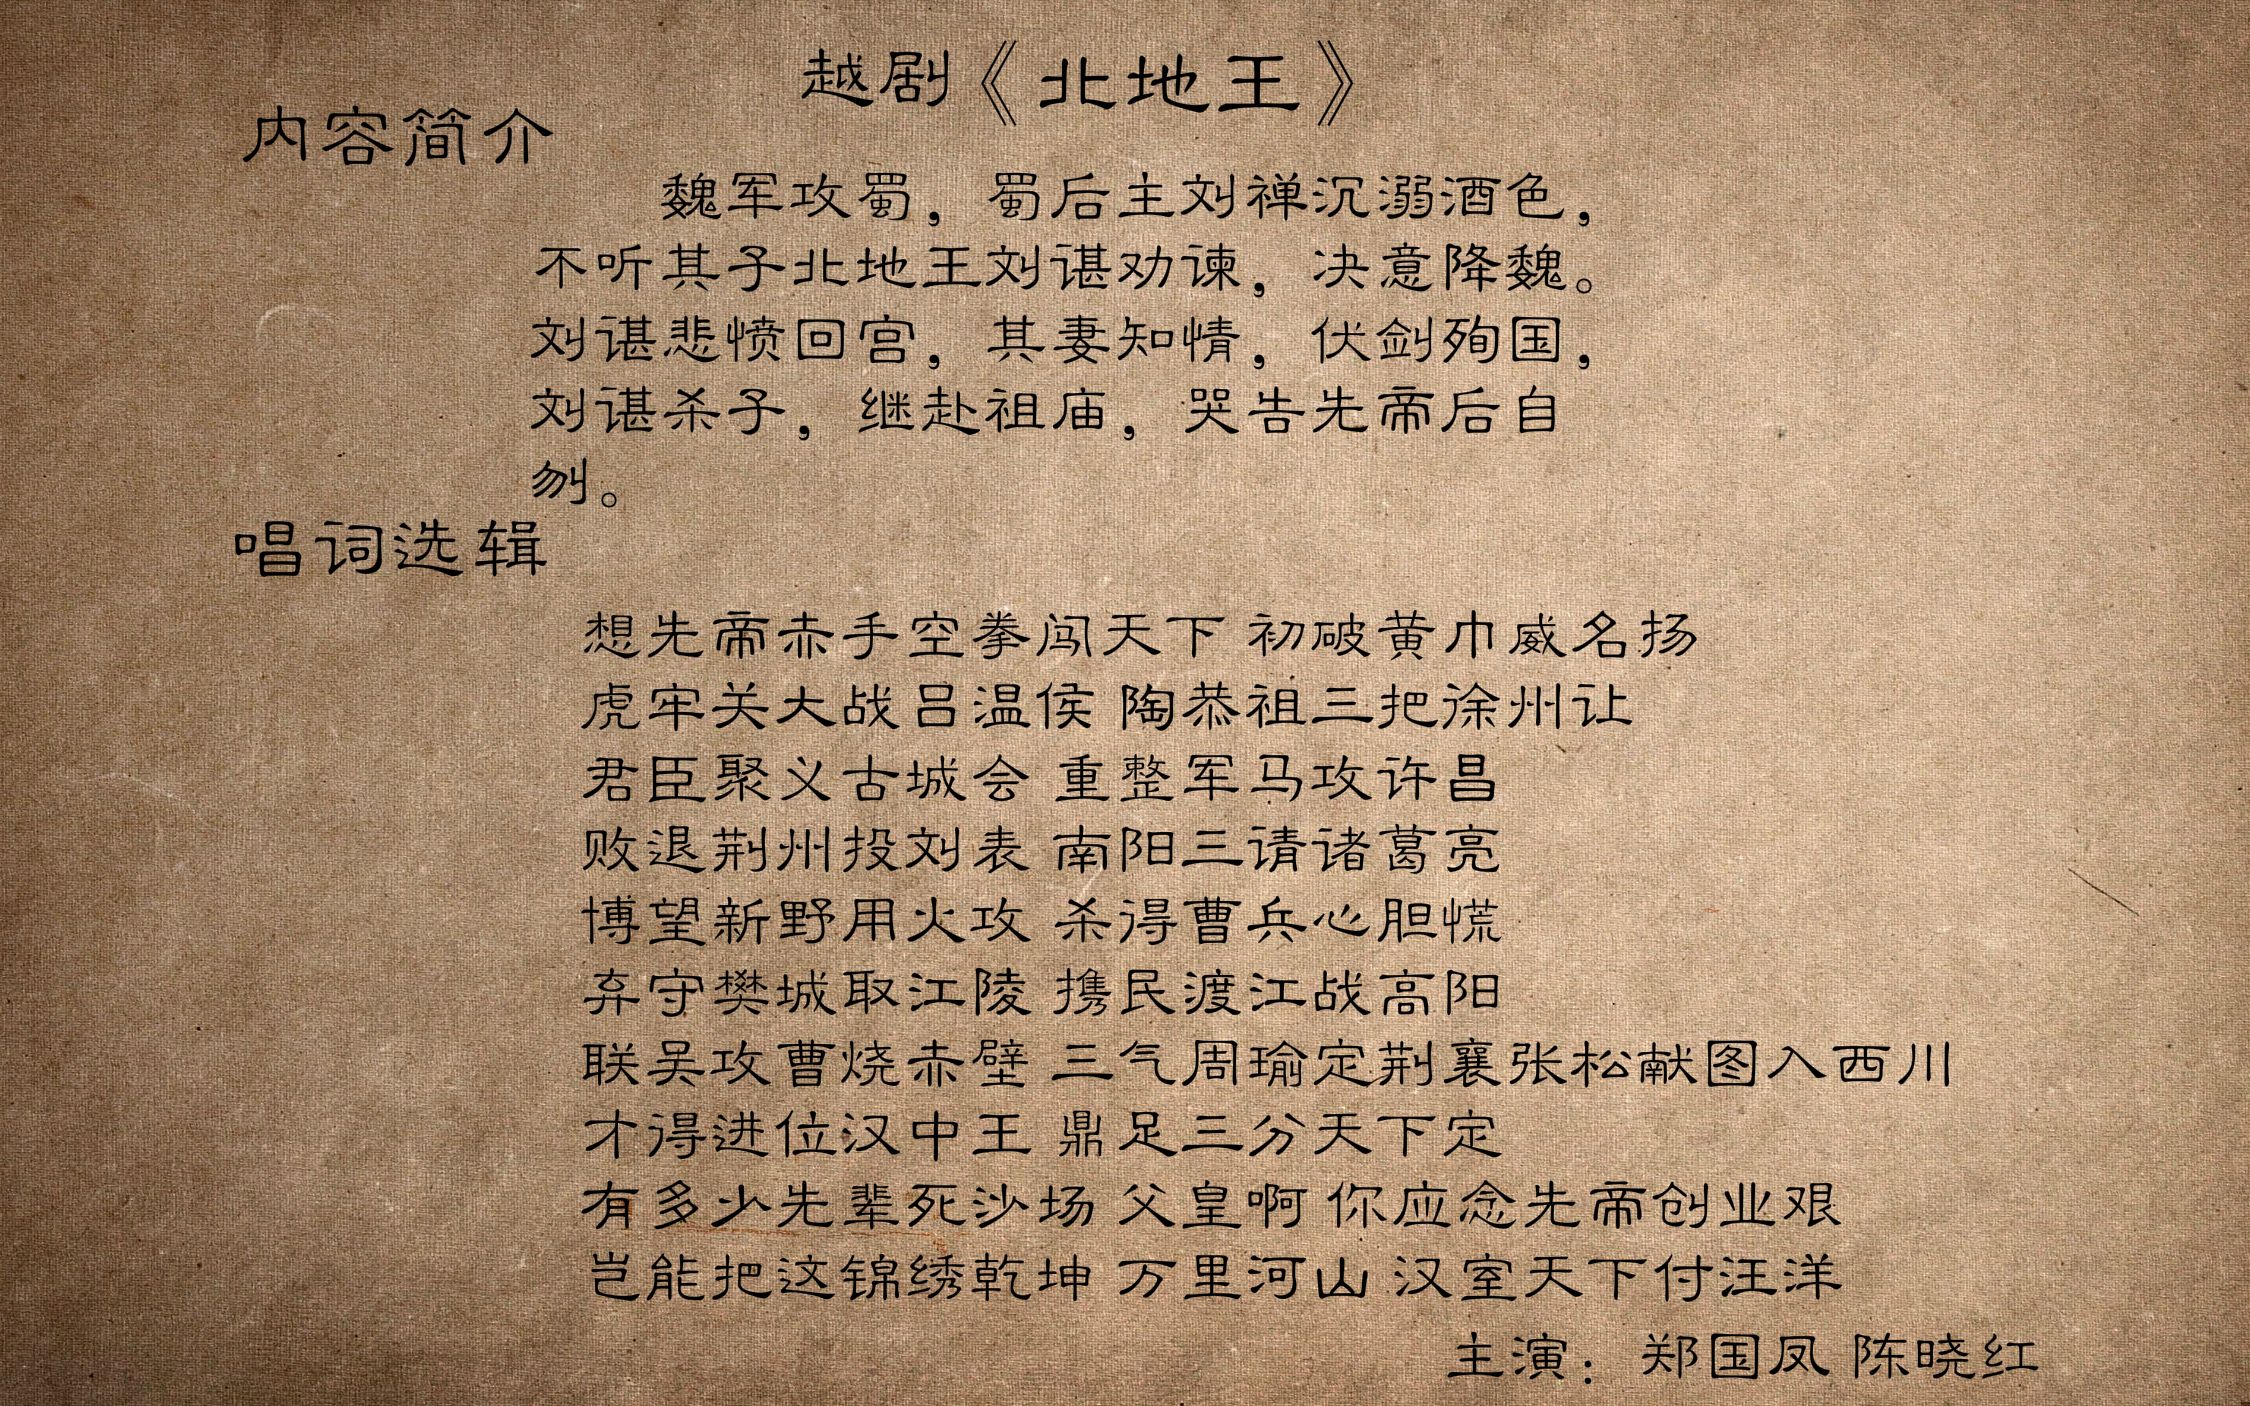 越剧《北地王》
内容简介
魏军攻蜀，蜀后主刘禅沉溺酒色，
不听其子北地王刘谌劝谏，决意降魏。
刘谌悲愤回宫，其妻知情，伏剑殉国，
刘谌杀子，继赴祖庙，哭告先帝后自
刎。
唱词选辑
想先帝赤手空拳闯天下 初破黄巾威名扬
虎牢关大战吕温侯 陶恭祖三把徐州让
君臣聚义古城会 重整军马攻许昌
败退荆州投刘表 南阳三请诸葛亮
博望新野用火攻 杀得曹兵心胆慌
弃守樊城取江陵 携民渡江战高阳
联吴攻曹烧赤壁 三气周瑜定荆襄张松献图入西川
才得进位汉中王 鼎足三分天下定
有多少先辈死沙场 父皇啊 你应念先帝创业艰
岂能把这锦绣乾坤 万里河山 汉室天下付汪洋
主演：郑国凤 陈晓红